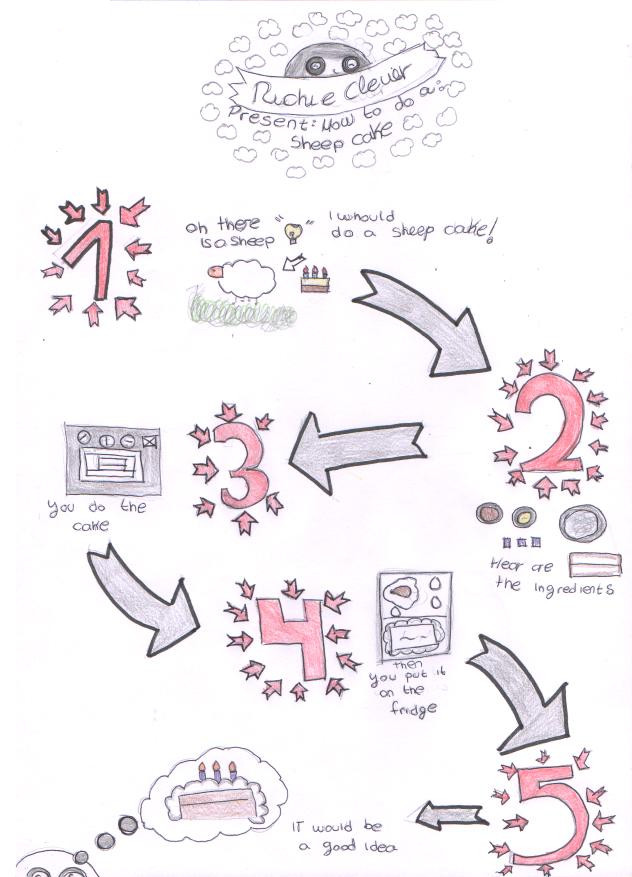 Richie Clever
Present: How to do a:
Sheep cake
1
oh there
Is a sheep
" "
I whould
do a sheep cake!
2
Hear are
the ingredients
3
you do the
cake
4
then
you put it
on the
fridge
5
IT would be
a good idea